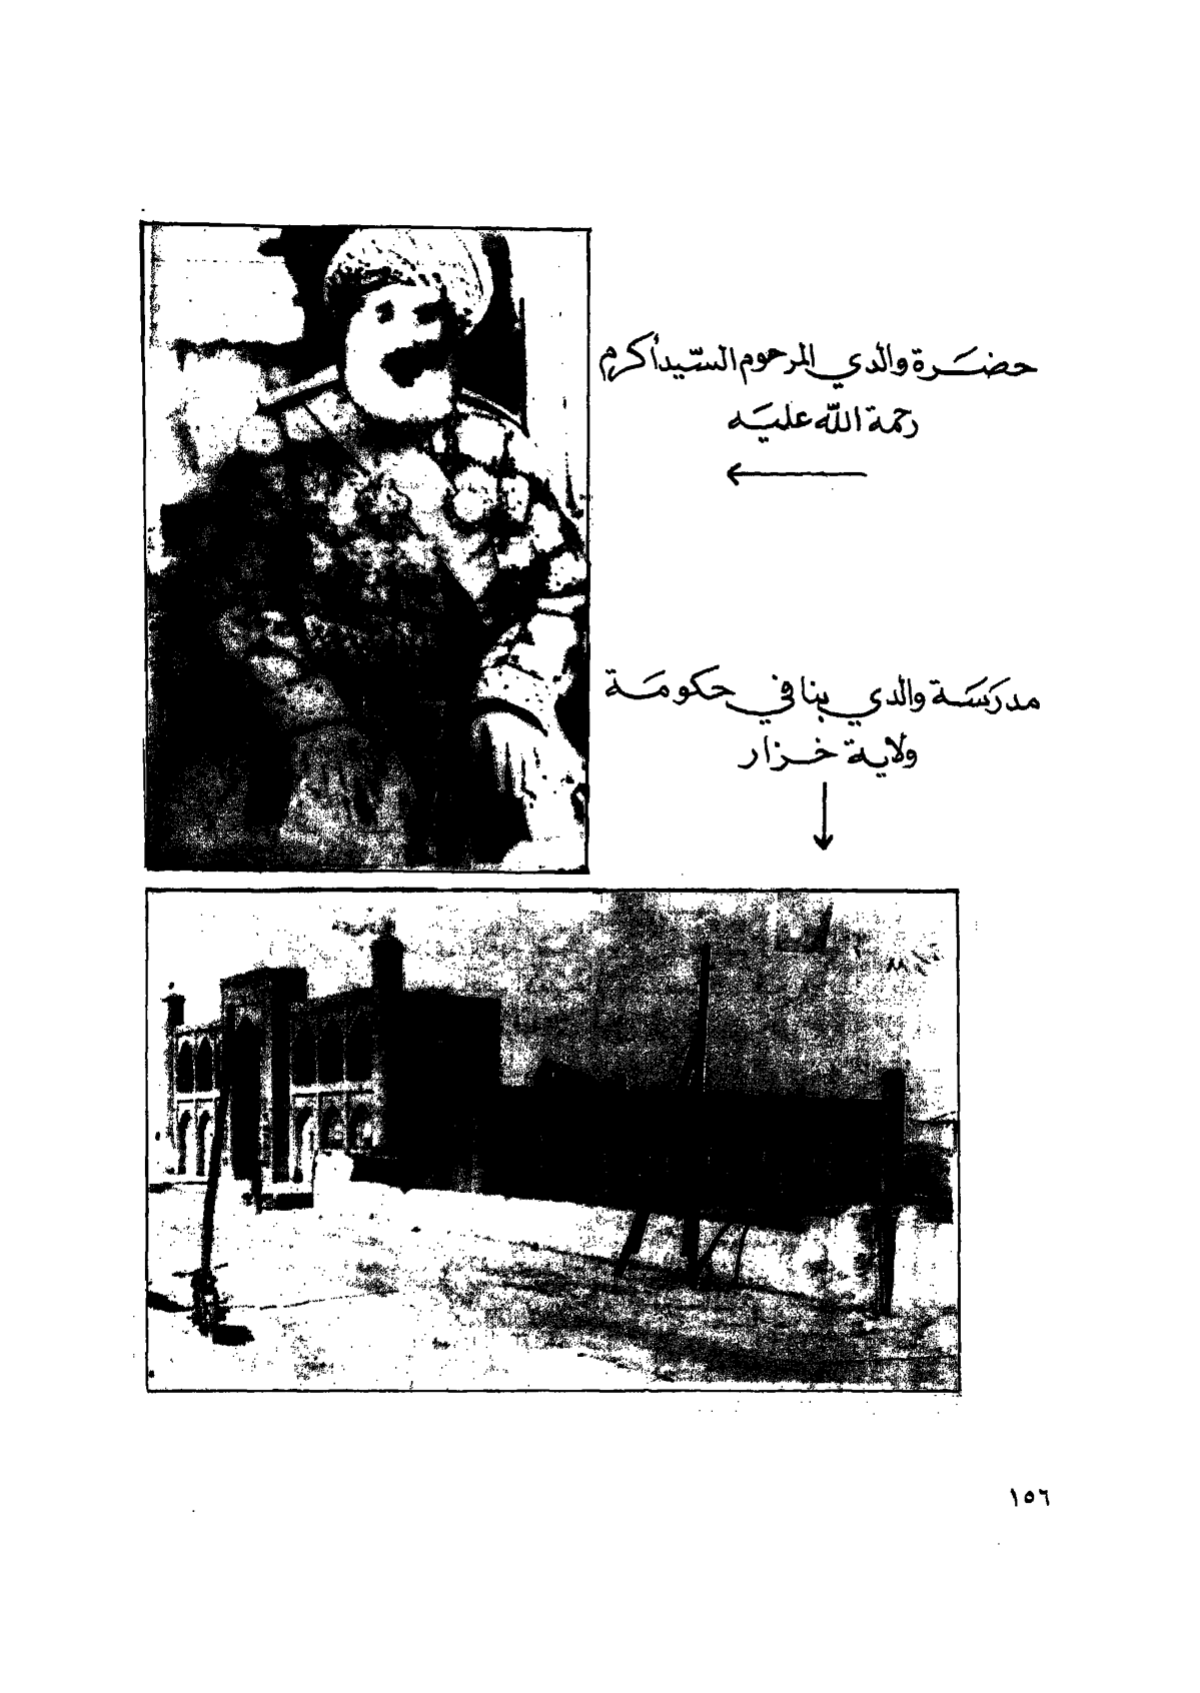 حضرة والدي المرحوم السيّد أكرم
رحمة الله عليه
مدرسة والدي بنا في حكومة
ولاية خزار
١٥٦